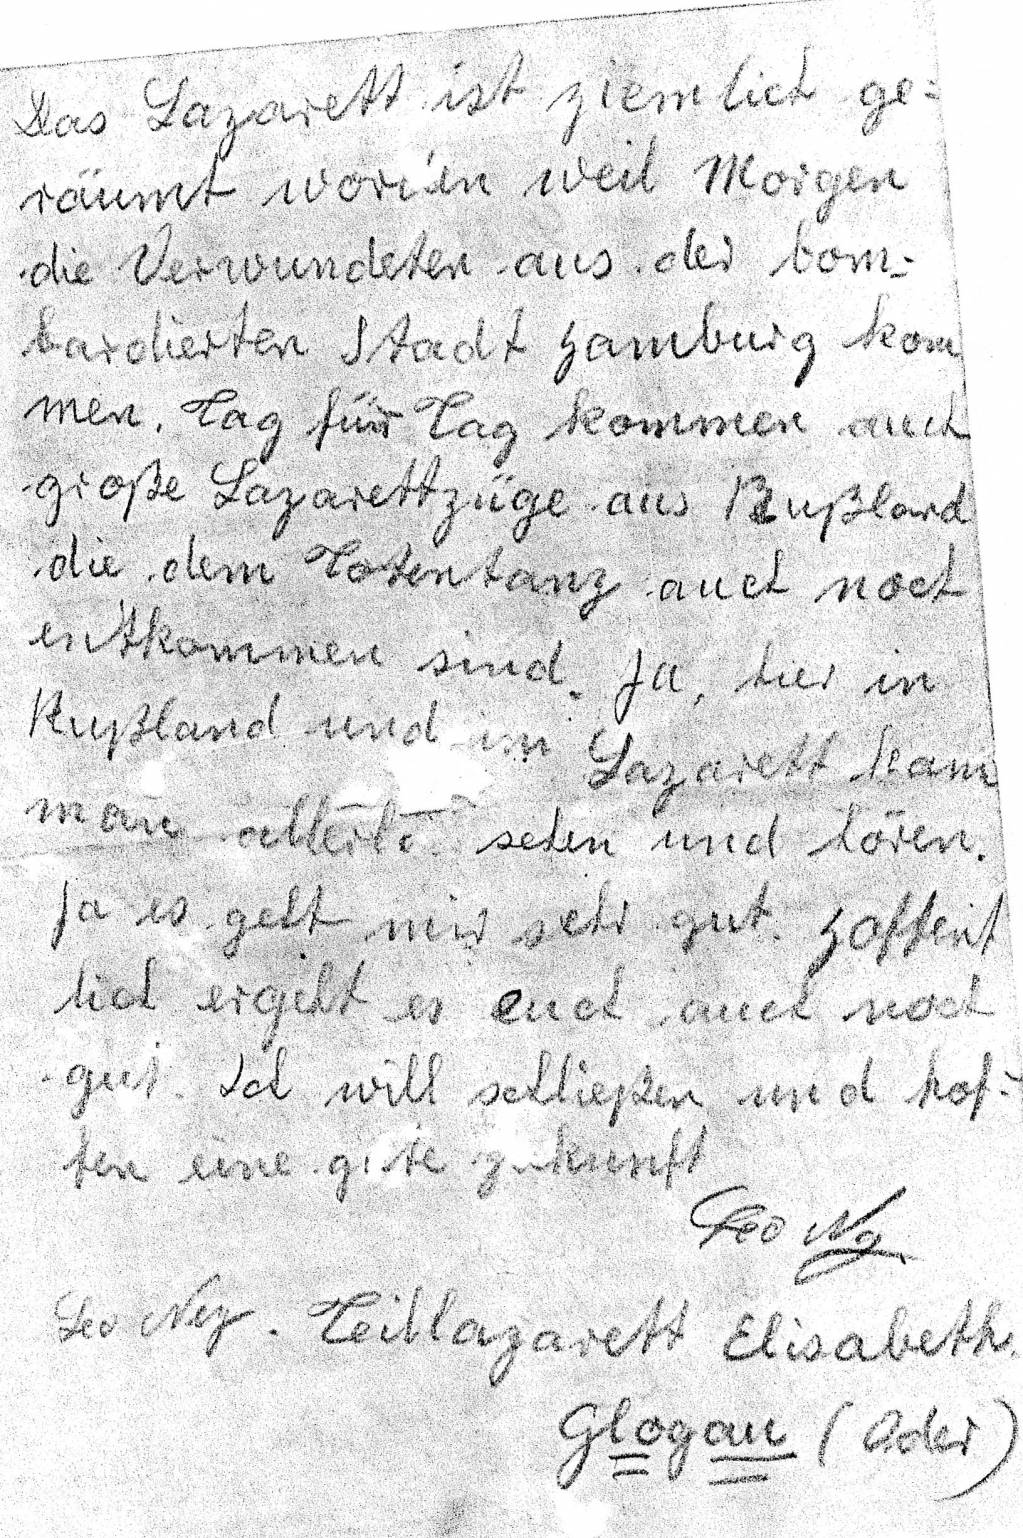 Das Lazarett ist ziemlich ge-
räumt worden weil Morgen
die Verwundeten aus der bom-
bardierten Stadt Hamburg kom
men. Tag für Tag kommen auch
große Lazarettzüge aus Rußland
die dem Totentanz auch noch
entkommen sind. Ja, hier in
Rußland und im Lazarett kann
man allerlei sehen und hören.
Ja es geht mir sehr gut. Hoffent
lich ergeht es euch auch noch
gut. Ich will schließen und hof-
fen eine gute Zukunft
Leo Ney
Leo Ney. Teillazarett Elisabeth.
Glogau (Oder)